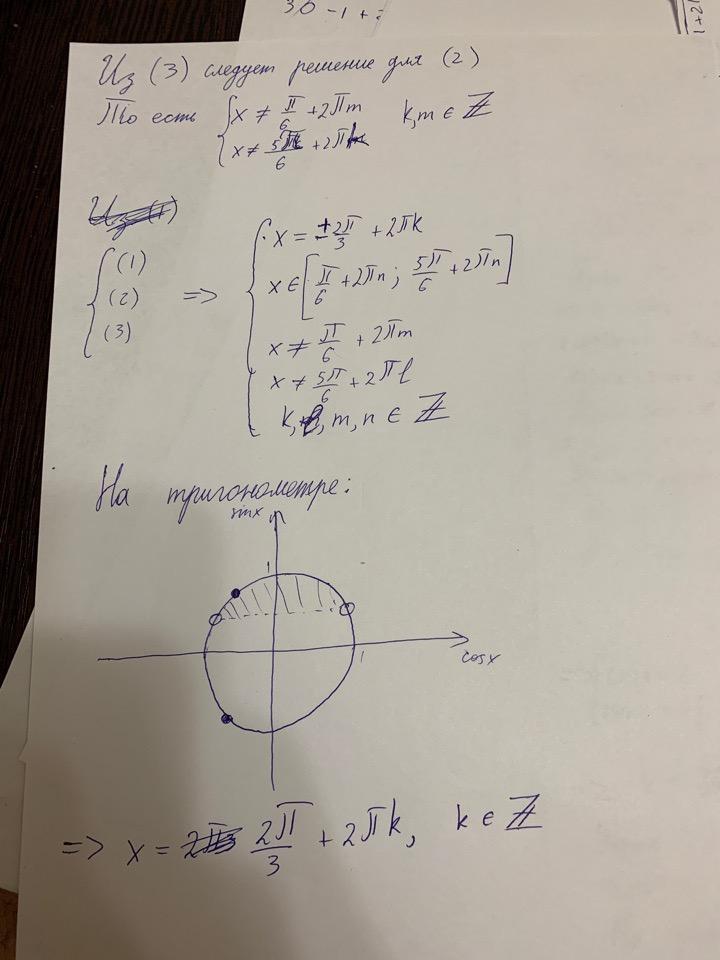 30 -1 +
1+21
Из (3) следует решение для (2)
То есть { x ≠ π/6 + 2πm k,m ∈ ℤ
x ≠ 5π/6 + 2π
Из (1)
{ (1)
(2)
(3)
=>
{ x = ± 2π/3 + 2πk
x ∈ [π/6 + 2πn ; 5π/6 + 2πn]
x ≠ π/6 + 2πm
x ≠ 5π/6 + 2πl
k, l, m, n ∈ ℤ
На тригонометре:
sinx
1
1
cosx
=> x = 2π/3 + 2πk, k ∈ ℤ